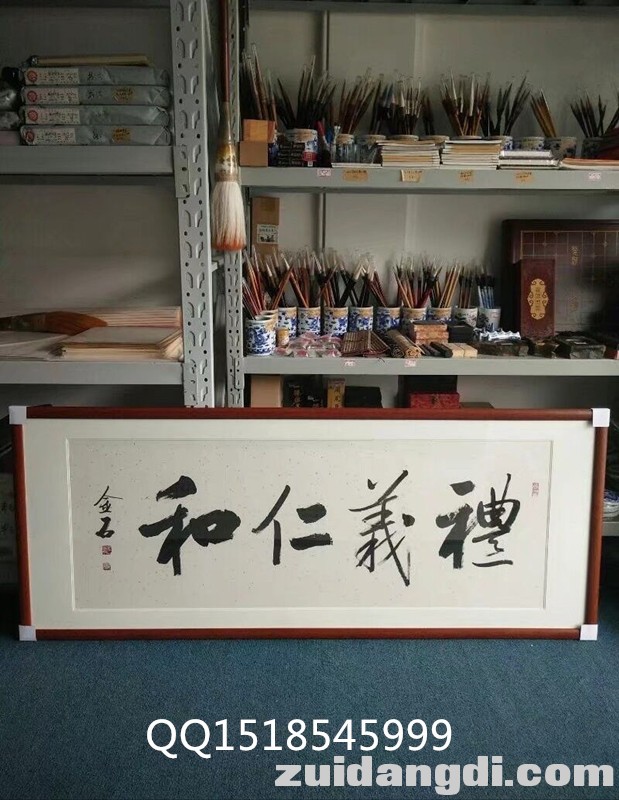 禮義仁和
金石
QQ1518545999
zuidangdi.com